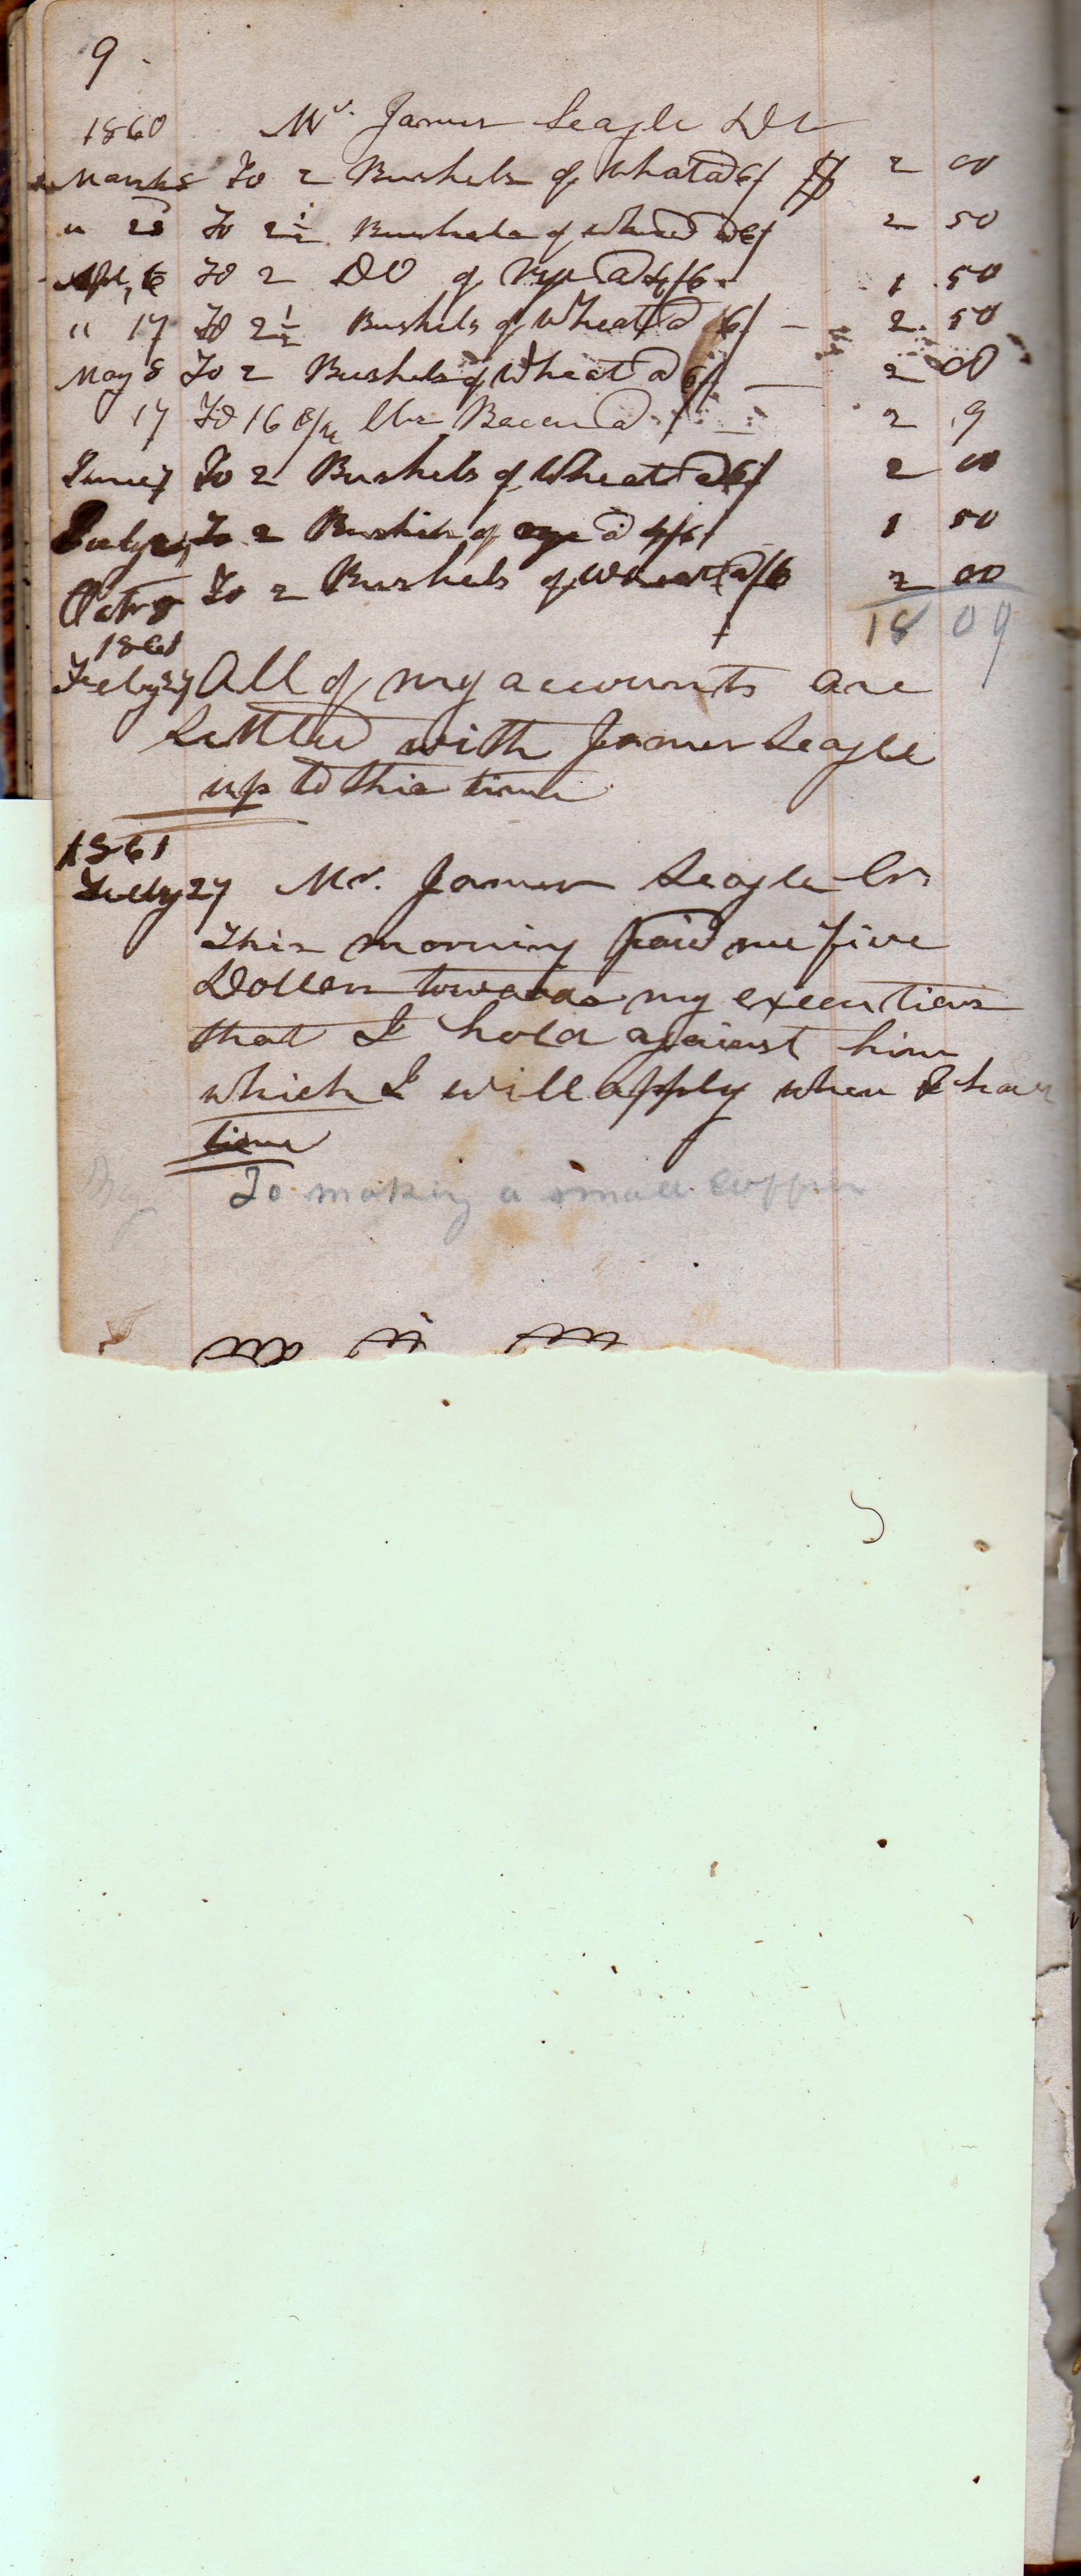 9
1860 Mr. James Seagle Dr
March 8 To 2 Bushels of Wheat @ 6/ $ 2 00
" 23 To 2 1/2 Bushels of Wheat @ 6/ 2 50
Apl, 6 To 2 DO of rye @ 4/6 1 50
" 17 To 2 1/2 Bushels of Wheat @ 6/ — 2 50
May 8 To 2 Bushels of Wheat @ 6/ — 2 00
17 To 16 lbs Bacon @ 2 9
June 7 To 2 Bushels of Wheat @ 6/ 2 00
July To 2 Bushels of rye @ 4/6 1 50
Octr 8 To 2 Bushels of Wheat @ /6 2 00
18 09
1861
Feby 27 All of my accounts are
Settled with James Seagle
up to this time
1861
Feby 27 Mr. James Seagle Cr.
This morning paid me five
Dollars towards my executions
that I hold against him
which I will apply when I have
time
To making a small coffin